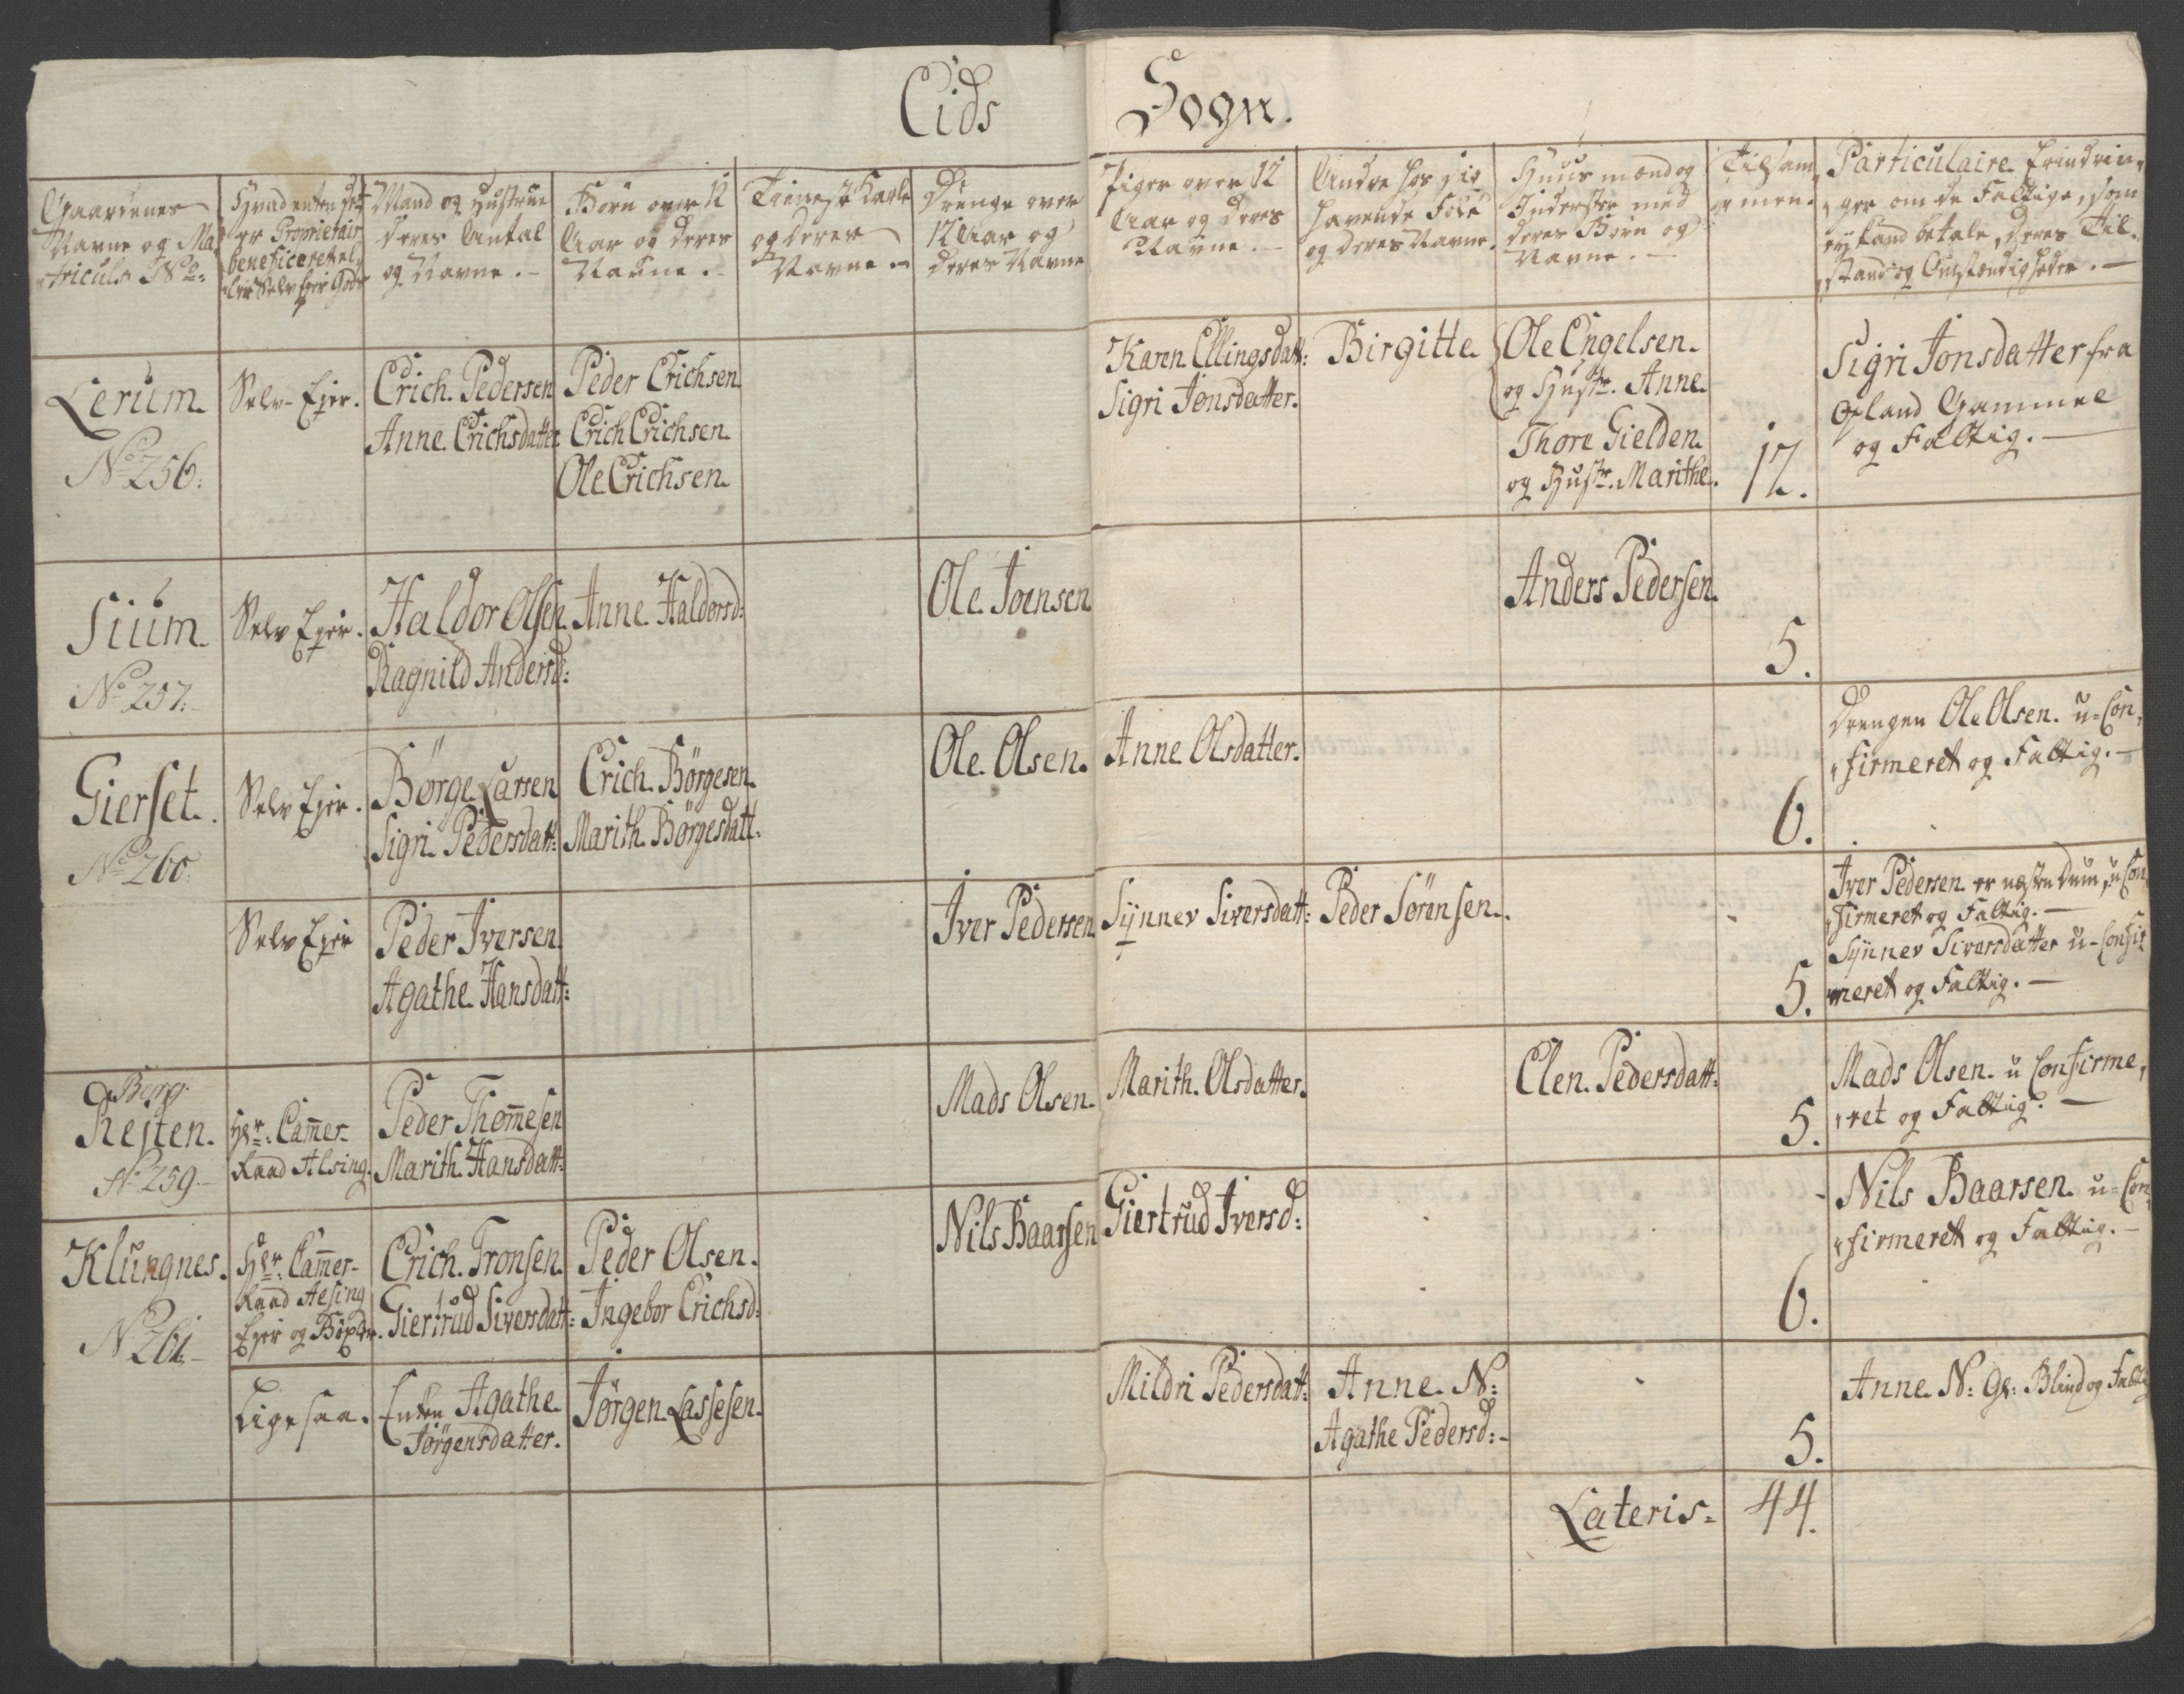 Eids Sogn.
Gaardenes
Navne og Ma
tricul. No:
Hvad enten det
er Proprietair
beneficeret el
ler Selv Ejer Gods
Mand og Hustrue
deres Antal
og Navne.-
Børn over 12
Aar og deres
Navne.-
Tieneste Karle
og deres
Navne.-
Drenge over
12 Aar og
deres Navne
Piger over 12
Aar og deres
Navne.-
Andre hos sig
havende Folk
og deres Navne.
Huusmænd og
Inderster med
deres Børn og
Navne.-
Tilsam
men.
Particulaire Erindrin,
ger om de Fattige, som
ej kand betale, deres Til,
stand og Omstændigheder.-
Lerum.
No 256:
Selv-Ejer.
Erich Pedersen
Anne Erichsdatter
Peder Erichsen
Erich Erichsen.
Ole Erichsen.
Karen Ellingsdatt:
Sigri Jonsdatter.
Birgitte
Ole Engelsen.
og Hustr. Anne.
Thore Gielden.
og Hustr. Marithe.
12.
Sigri Jonsdatter fra
Opland Gammel
og Fattig.-
Sium
No 257.-
Selv Ejer.
Haldor Olsen
Ragnild Andersd:
Anne Haldorsd:
Ole Joensen
Anders Pedersen.
5.
Gierset.
No 260.
Selv Ejer.
Børge Larsen
Sigri Pedersdatt:
Erich Børgesen.
Marith Børgesdatt:
Ole Olsen.
Anne Olsdatter.
6.
Drengen Ole Olsen. u-Con,
firmeret og Fattig.-
Selv Ejer
Peder Iversen
Agathe Hansdatt:
Iver Pedersen
Synnev Siversdatt:
Peder Sørensen.
5.
Iver Pedersen er næsten dum, u Con,
firmeret og Fattig.-
Synnev Siversdatter u-Confir
meret og Fattig.-
Berg
Rejten.
No 259.-
Hr: Cammer-
Raad Alsing.
Peder Thomesen
Marith Hansdatt:
Mads Olsen.
Marith. Olsdatter.
Elen. Pedersdatt:
5.
Mads Olsen. u Confirme,
ret og Fattig.-
Klungnes.
No 261.-
Hr: Cammer-
Raad Alsing
Ejer og
Erich. Tronsen.
Giertrud Siversdatt:
Peder Olsen.
Ingebor Erichsd:
Nils Baarsen
Giertrud Iversd:
6.
Nils Baarsen. u-Con,
firmeret og Fattig.-
Ligesaa.
Enken Agathe
Jørgensdatter.
Jørgen Lassesen.
Mildri Pedersdatt:
Anne. N:
Agathe Pedersd:-
5.
Anne. N: Er: Blind og Fattig
Lateris- 44.